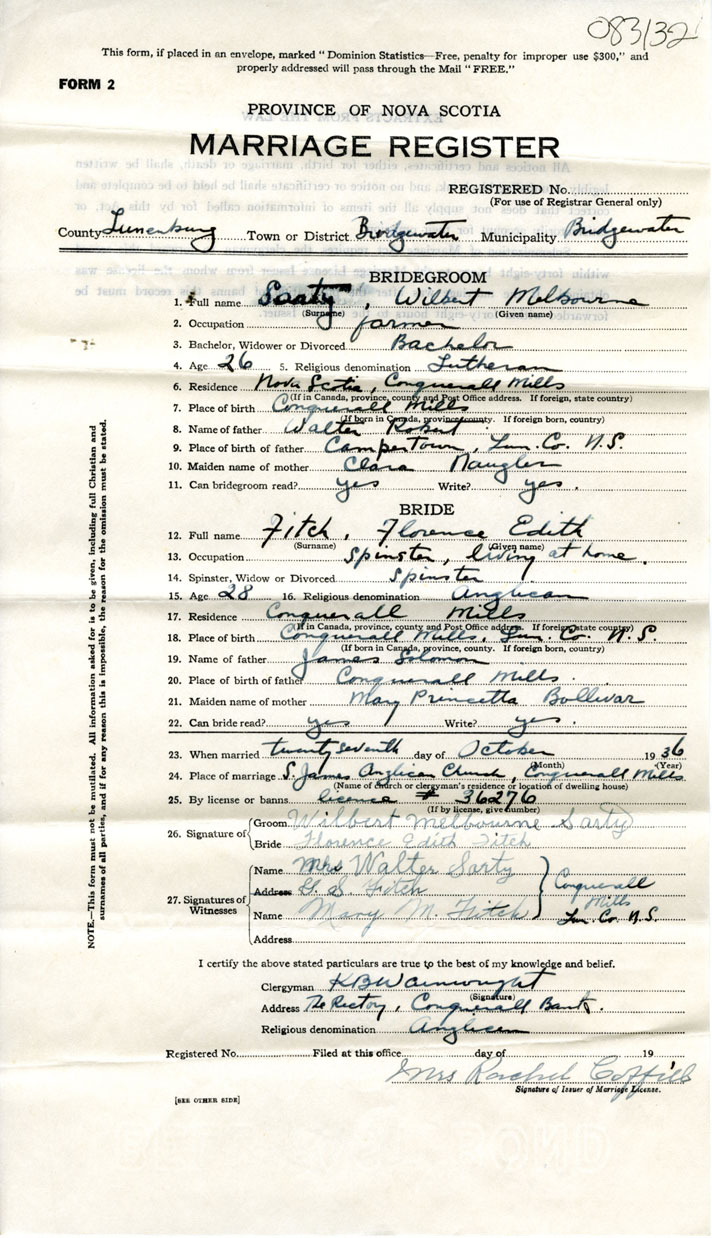 083132
This form, if placed in an envelope, marked "Dominion Statistics—Free, penalty for improper use $300," and
properly addressed will pass through the Mail "FREE."
FORM 2
PROVINCE OF NOVA SCOTIA
MARRIAGE REGISTER
REGISTERED No.
(For use of Registrar General only)
County Lunenburg Town or District Bridgewater Municipality Bridgewater
BRIDEGROOM
1. Full name Sarty, Wilbert Melbourne
(Surname) (Given name)
2. Occupation farmer
3. Bachelor, Widower or Divorced Bachelor
4. Age 26 5. Religious denomination Lutheran
6. Residence Nova Scotia, Conquerall Mills
(If in Canada, province, county and Post Office address. If foreign, state country)
7. Place of birth Conquerall Mills
(If born in Canada, province, county. If foreign born, country)
8. Name of father Walter Robert
9. Place of birth of father Campertown, Lun. Co. N.S.
10. Maiden name of mother Clara Naugler
11. Can bridegroom read? yes Write? yes.
BRIDE
12. Full name Fitch, Florence Edith
(Surname) (Given name)
13. Occupation Spinster, living at home.
14. Spinster, Widow or Divorced Spinster
15. Age 28 16. Religious denomination Anglican
17. Residence Conquerall Mills
(If in Canada, province, county and Post Office address. If foreign, state country)
18. Place of birth Conquerall Mills, Lun. Co. N.S.
(If born in Canada, province, county. If foreign born, country)
19. Name of father James Solomon
20. Place of birth of father Conquerall Mills.
21. Maiden name of mother Mary Princetta Bollivar
22. Can bride read? yes Write? yes.
23. When married twenty seventh day of October 1936
(Month) (Year)
24. Place of marriage S. James Anglican Church, Conquerall Mills
(Name of church or clergyman's residence or location of dwelling house)
25. By license or banns license # 36276
(If by license, give number)
26. Signature of
Groom Wilbert Melbourne Sarty
Bride Florence Edith Fitch
27. Signatures of Witnesses
Name Mrs Walter Sarty
Address G. S. Fitch
Name Mary M. Fitch
Address
Conquerall
Mills
Lun. Co. N.S.
I certify the above stated particulars are true to the best of my knowledge and belief.
Clergyman K B Wainwright
(Signature)
Address The Rectory, Conquerall Bank.
Religious denomination Anglican
Registered No. Filed at this office day of 19
Mrs Rachel Coffill
Signature of Issuer of Marriage License.
[SEE OTHER SIDE]
NOTE.—This form must not be mutilated. All information asked for is to be given, including full Christian and
surnames of all parties, and if for any reason this is impossible, the reason for the omission must be stated.